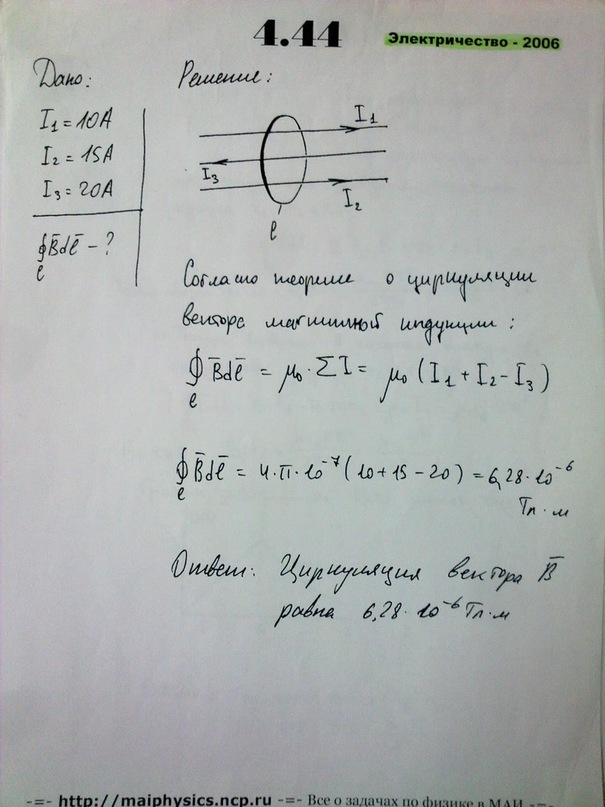 4.44
Электричество - 2006
Дано:
I₁ = 10A
I₂ = 15A
I₃ = 20A
∮B̅dl̅ - ?
l
Решение:
I₁
I₃
I₂
l
Согласно теореме о циркуляции
вектора магнитной индукции:
∮B̅dl̅ = μ₀·ΣI = μ₀(I₁ + I₂ - I₃)
l
∮B̅dl̅ = 4·π·10⁻⁷(10 + 15 - 20) = 6,28·10⁻⁶
l
Тл·м
Ответ: Циркуляция вектора B̅
равна 6,28·10⁻⁶ Тл·м
-=- http://maiphysics.ncp.ru -=- Все о задачах по физике в МАИ -=-